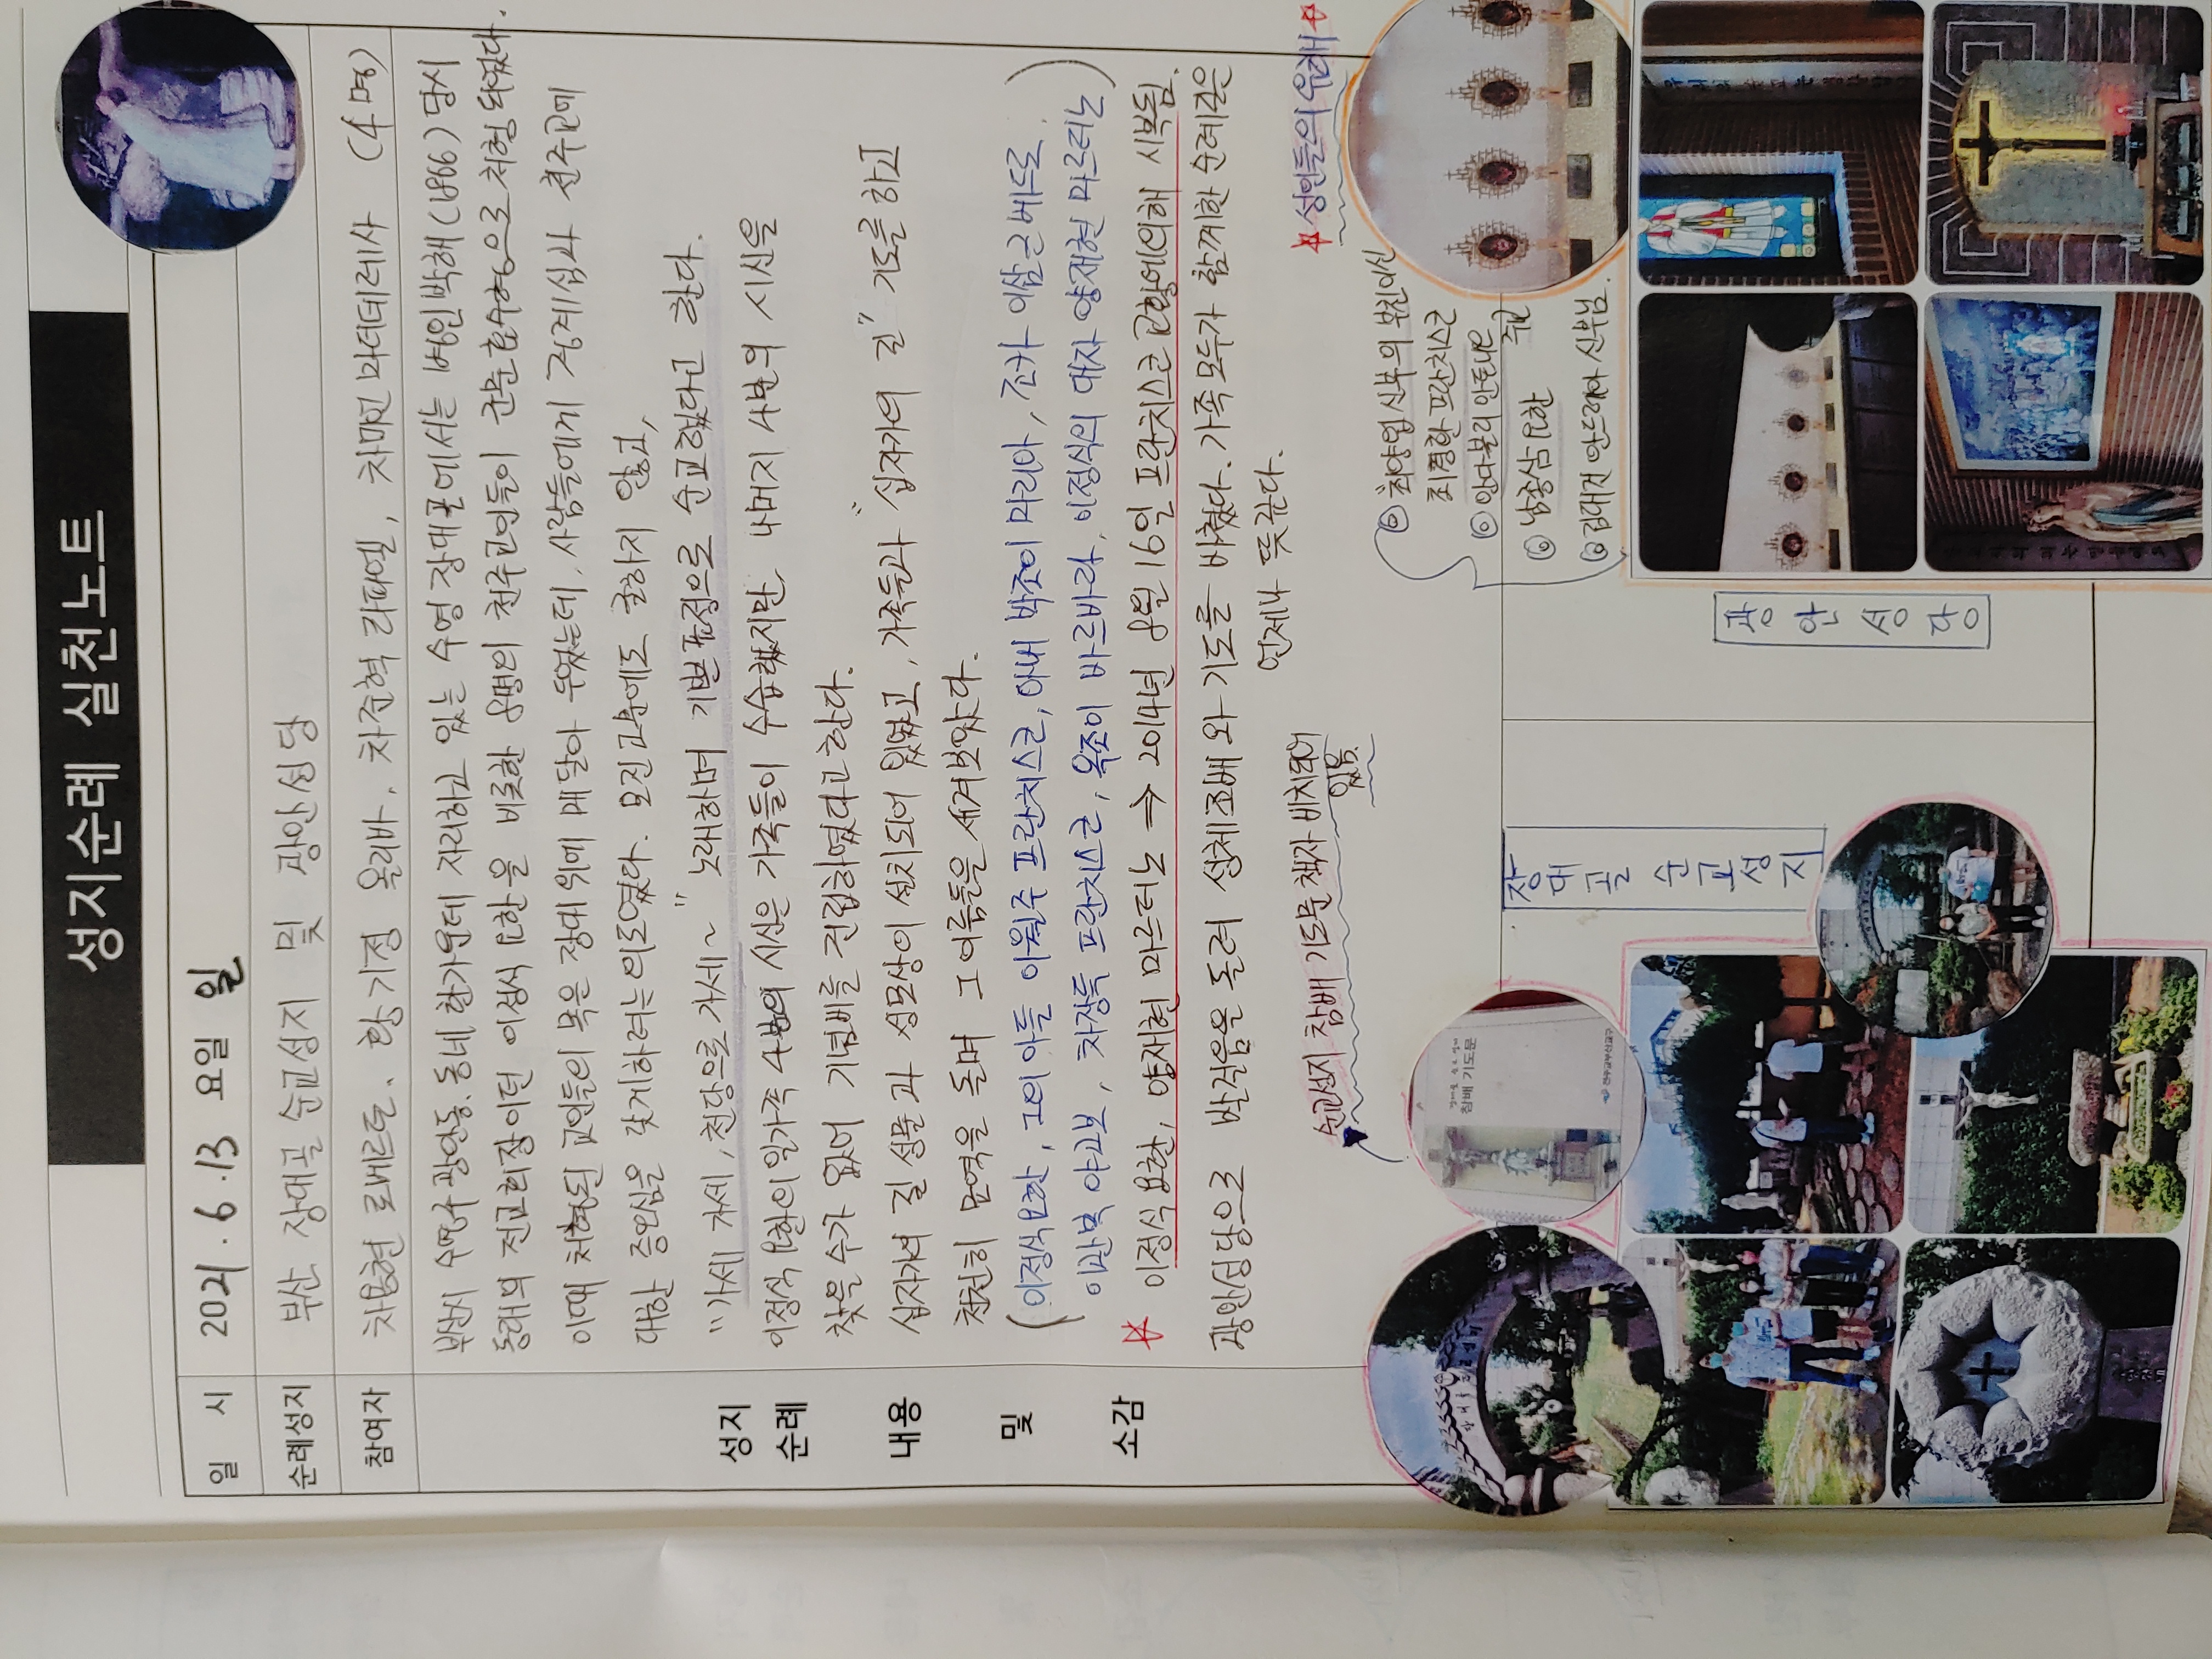 성지순례 실천노트
일 시 2021. 6. 13 요일 일
순례성지 부산 장대골 순교성지 및 광안성당
참여자 차용현 로베르토, 황기정 올리바, 차준혁 라파엘, 차미현 마더데레사 (4명)
성지
순례
내용
및
소감
부산시 수영구 광안동, 동네 한가운데 자리하고 있는 수영 장대골에서는 병인박해(1866) 당시
동래의 전교회장이던 이정식 요한을 비롯한 8명의 천주교인들이 군문효수형으로 처형되었다.
이때 처형된 교인들의 목은 장대위에 매달아 두었는데, 사람들에게 경계심과 천주교에
대한 증오심을 갖게하려는 의도였다. 모진고문에도 굴하지 않고,
"가세 가세, 천당으로 가세~" 노래하며 기쁜표정으로 순교했다고 한다.
이정식 요한의 일가족 4분의 시신은 가족들이 수습했지만, 나머지 4분의 시신을
찾을 수가 없어 기념비를 건립하였다고 한다.
십자가의 길 성물과 성모상이 설치되어 있었고, 가족들과 "십자가의 길" 기도를 하고
천천히 묘역을 돌며 그 이름들은 새겨보았다.
(이정식요한, 그의 아들 이월주 프란치스코, 아내 박조이 마리아, 조카 이삼근 베드로,
이관복 야고보, 차장득 프란치스코, 옥조이 바르바라, 이정식의 대자 양재현 마르티노)
☆ 이정식 요한, 양재현 마르티노 ⇒ 2014년 8월 16일 프란치스코 교황에의해 시복됨.
광안성당으로 발걸음을 돌려 성체조배와 기도를 바쳤다. 가족 모두가 함께한 순례길은
언제나 뜻깊다.
순교성지 참배 기도문 책자 비치되어
있음.
☆ 성인들의 유해 ☆
◎ 최양업 신부의 부친이신
최경환 프란치스코
◎ 안다블뤼 안토니오
주교
◎ 남종삼 요한
◎ 김대건 안드레아 신부님.
장대골 순교성지
장대골 순교성지
참배 기도문
천주교부산교구
장대골 순교성지
광안성당